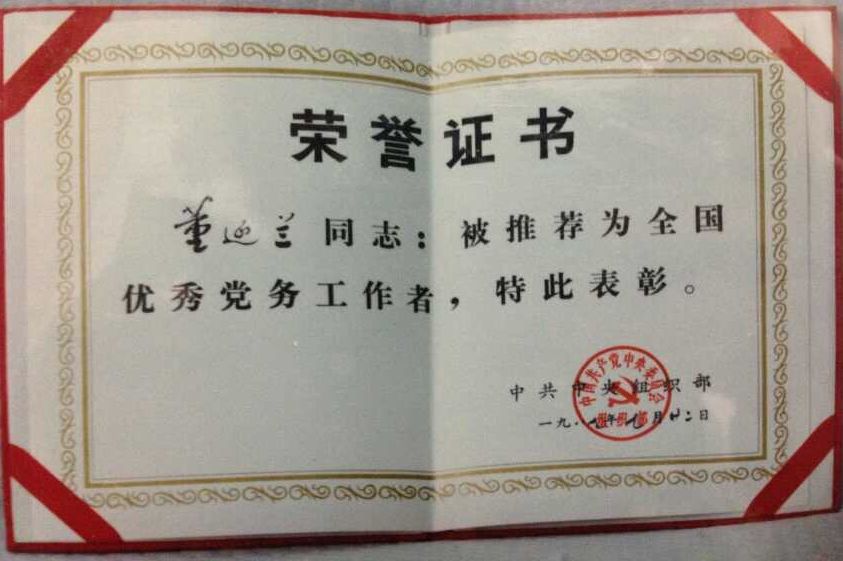 荣誉证书
董迎兰同志：被推荐为全国
优秀党务工作者，特此表彰。
中共中央组织部
一九八 年 月廿二日
中国共产党中央委员会
组织部